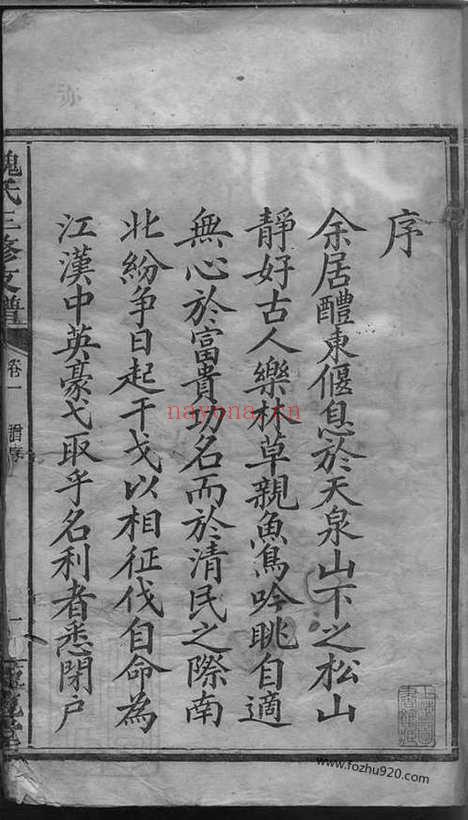 序
余居醴東偃息於天泉山下之松山
靜好古人樂林草親魚鳥吟眺自適
無心於富貴功名而於清民之際南
北紛爭日起干戈以相征伐自命為
江漢中英豪弋取乎名利者悉閉戶
魏氏三修支譜
卷一
一
nayona.cn
www.fozhu920.com